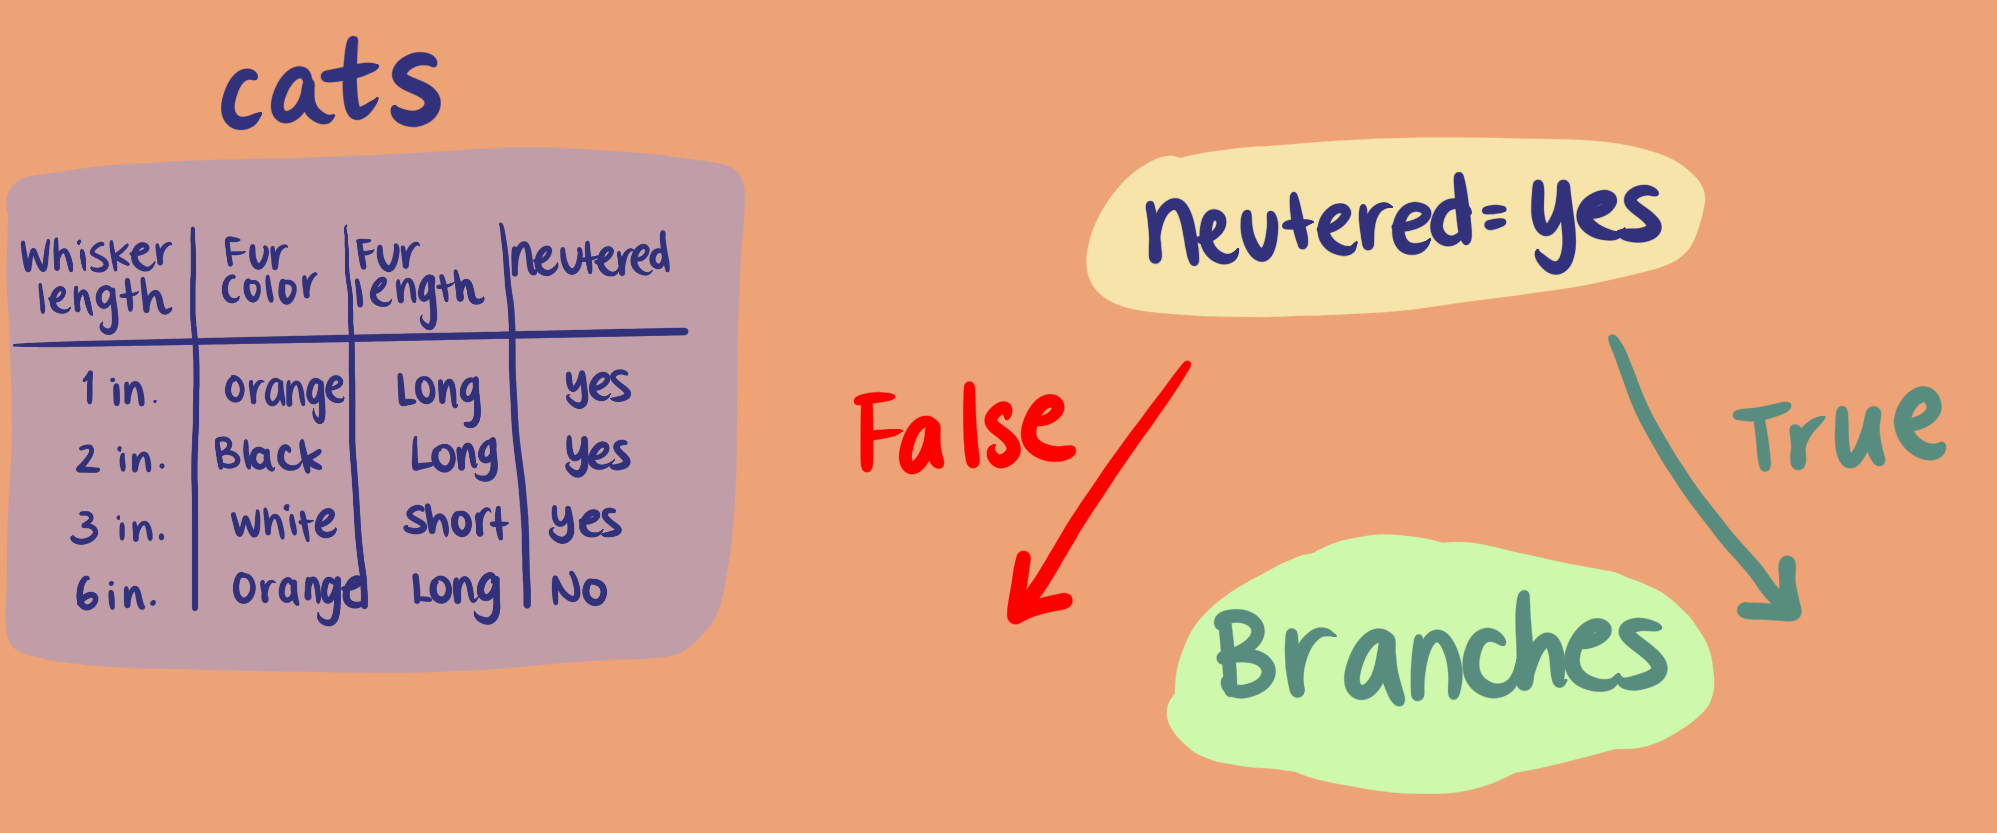 cats
Whisker length | Fur color | Fur length | neutered
1 in. | orange | Long | yes
2 in. | Black | Long | yes
3 in. | white | short | yes
6 in. | Orange | Long | No
neutered = yes
False
True
Branches